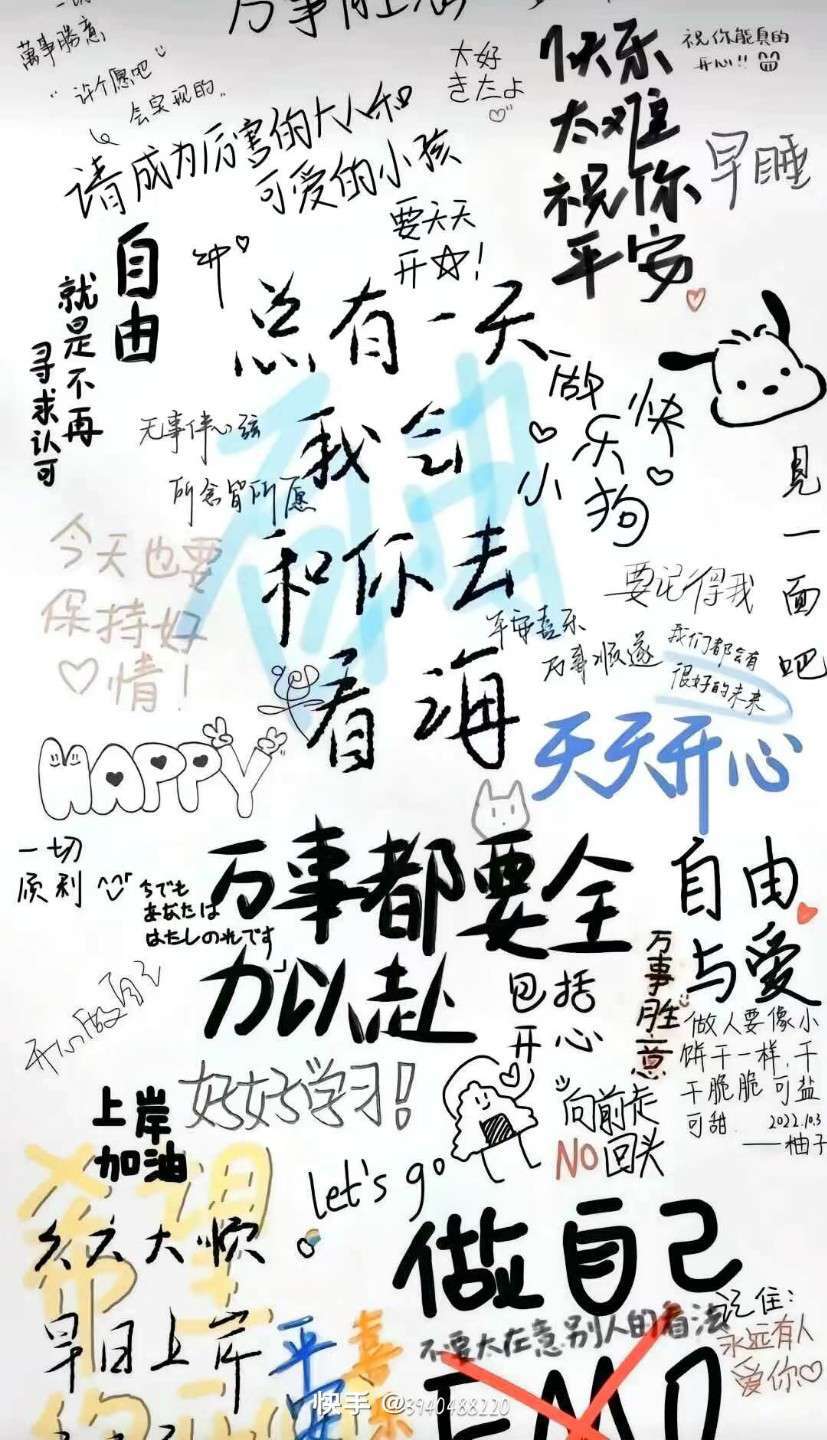 萬事勝意
许个愿吧
会实现的。
请成为厉害的大人和
可爱的小孩
大好
きたよ
快乐
太难
祝你
平安
祝你能真的
开心!!
早睡
要天天
开☆!
冲
自由
就是不再
寻求认可
总有一天
我会
和你去
看海
自由
做
快
乐
小
狗
无事伴心弦
所念皆所愿
今天也要
保持好
♡情!
见一面吧
要记得我
平安喜乐
万事顺遂
我们都会有
很好的未来
天天开心
HAPPY
一切
顺利
あなたは
万事都要全
力以赴
包括
开心
自由
与爱
万事胜意
做人要像小
饼干一样,干
干脆脆可盐
可甜
2022.10.3
——柚子
开心做自己
好好学习!
上岸
加油
let's go
向前走
NO回头
希望
六六大顺
早日上岸
平安
喜乐
做自己
不要太在意别人的看法
EMO
记住:
永远有人
爱你♡
快手 @3940488220